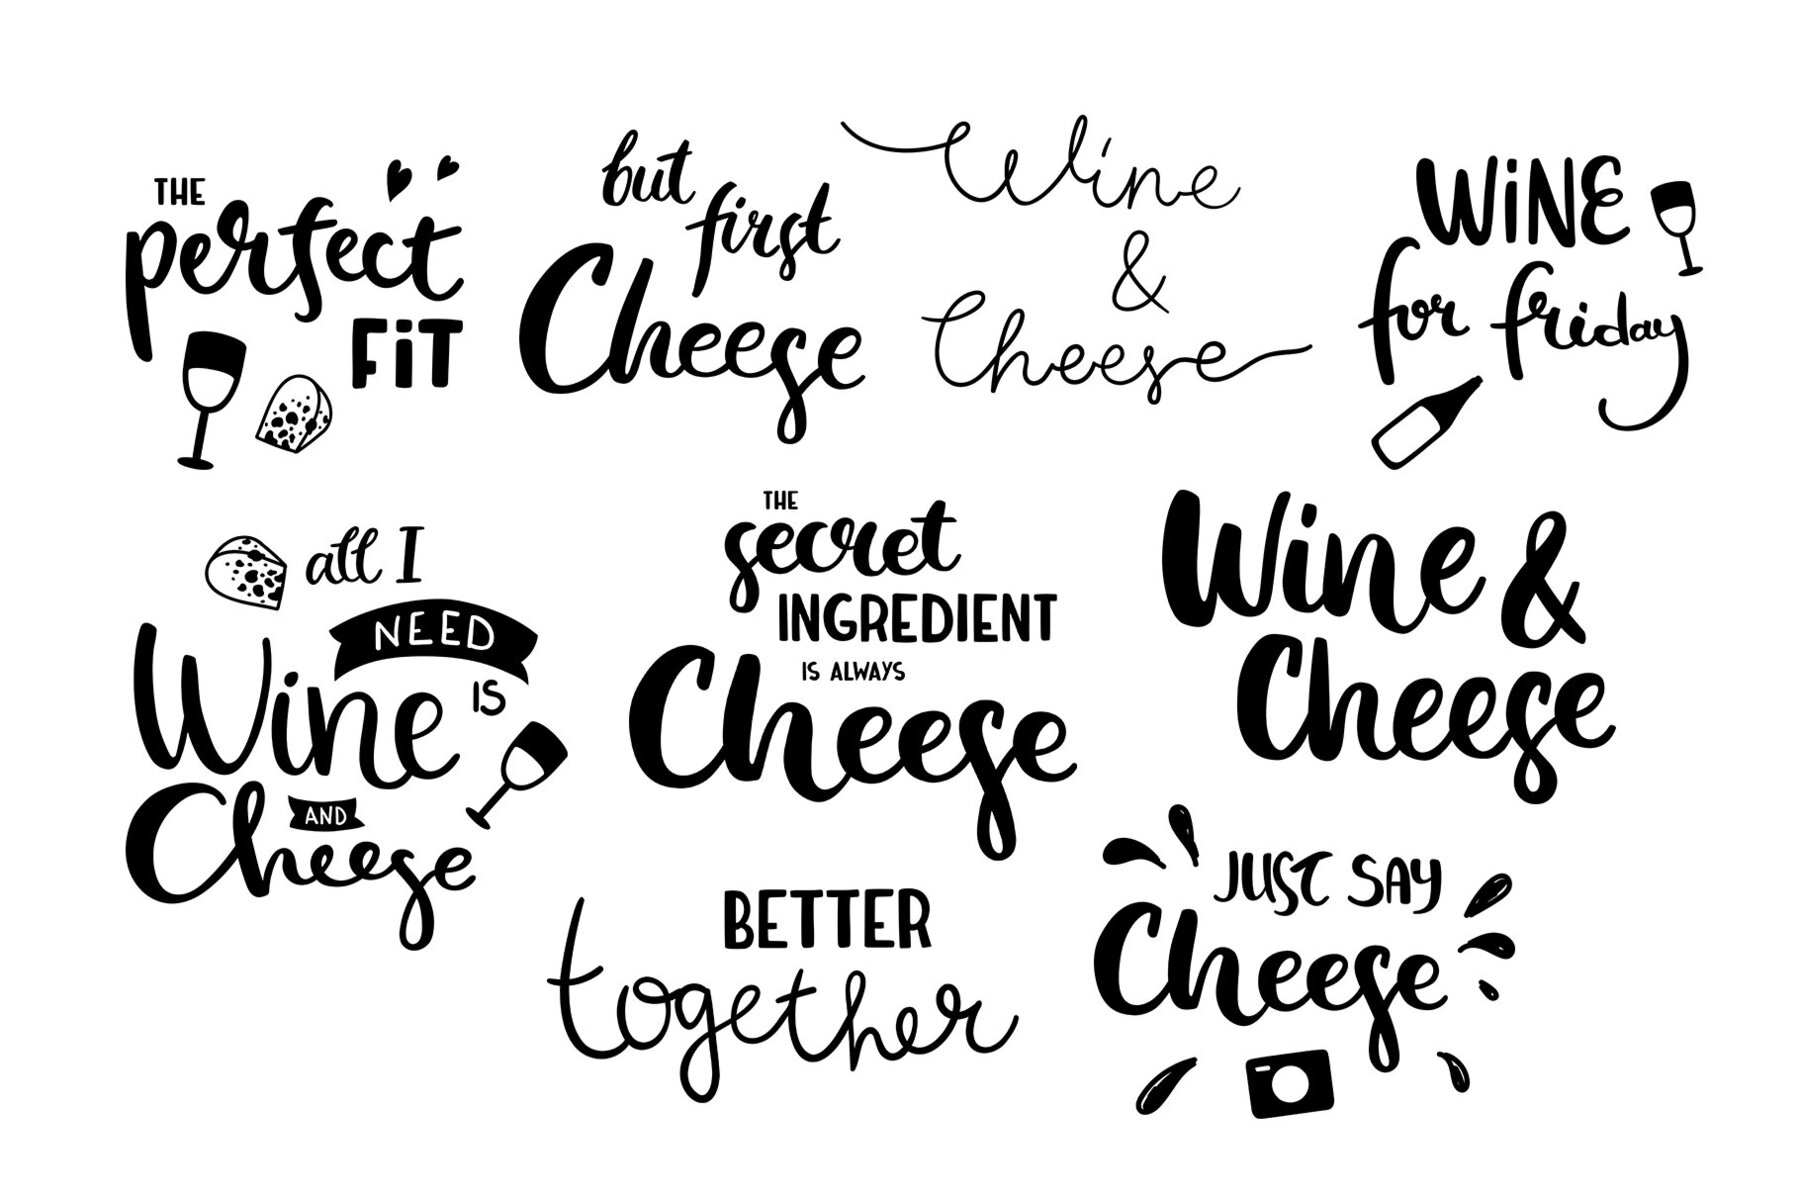 THE
perfect
FiT
but
first
Cheese
Wine
&
Cheese
WiNE
for friday
all I
NEED
Wine IS
AND
Cheese
THE
secret
INGREDIENT
IS ALWAYS
Cheese
Wine &
Cheese
BETTER
together
JUST SAY
Cheese